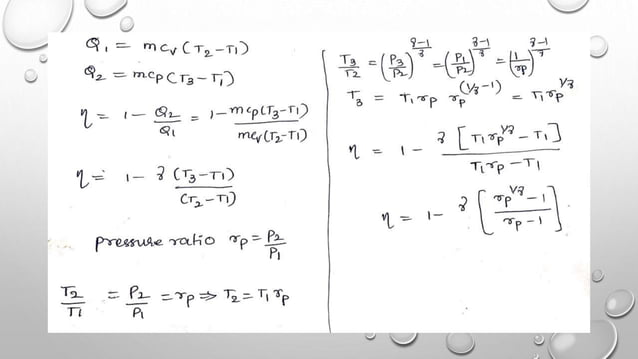 Q₁ = mcv (T₂-T₁)
Q₂ = mcp (T₃-T₁)
η = 1 - Q₂/Q₁ = 1 - mcp(T₃-T₁)/mcv(T₂-T₁)
η = 1 - γ (T₃-T₁)/(T₂-T₁)
pressure ratio rp = P₂/P₁
T₂/T₁ = P₂/P₁ = rp ⇒ T₂ = T₁ rp
T₃/T₂ = (P₃/P₂)^(γ-1/γ) = (P₁/P₂)^(γ-1/γ) = (1/rp)^(γ-1/γ)
T₃ = T₁ rp rp^(1/γ-1) = T₁ rp^(1/γ)
η = 1 - γ [T₁ rp^(1/γ) - T₁]/(T₁ rp - T₁)
η = 1 - γ [(rp^(1/γ) - 1)/(rp - 1)]